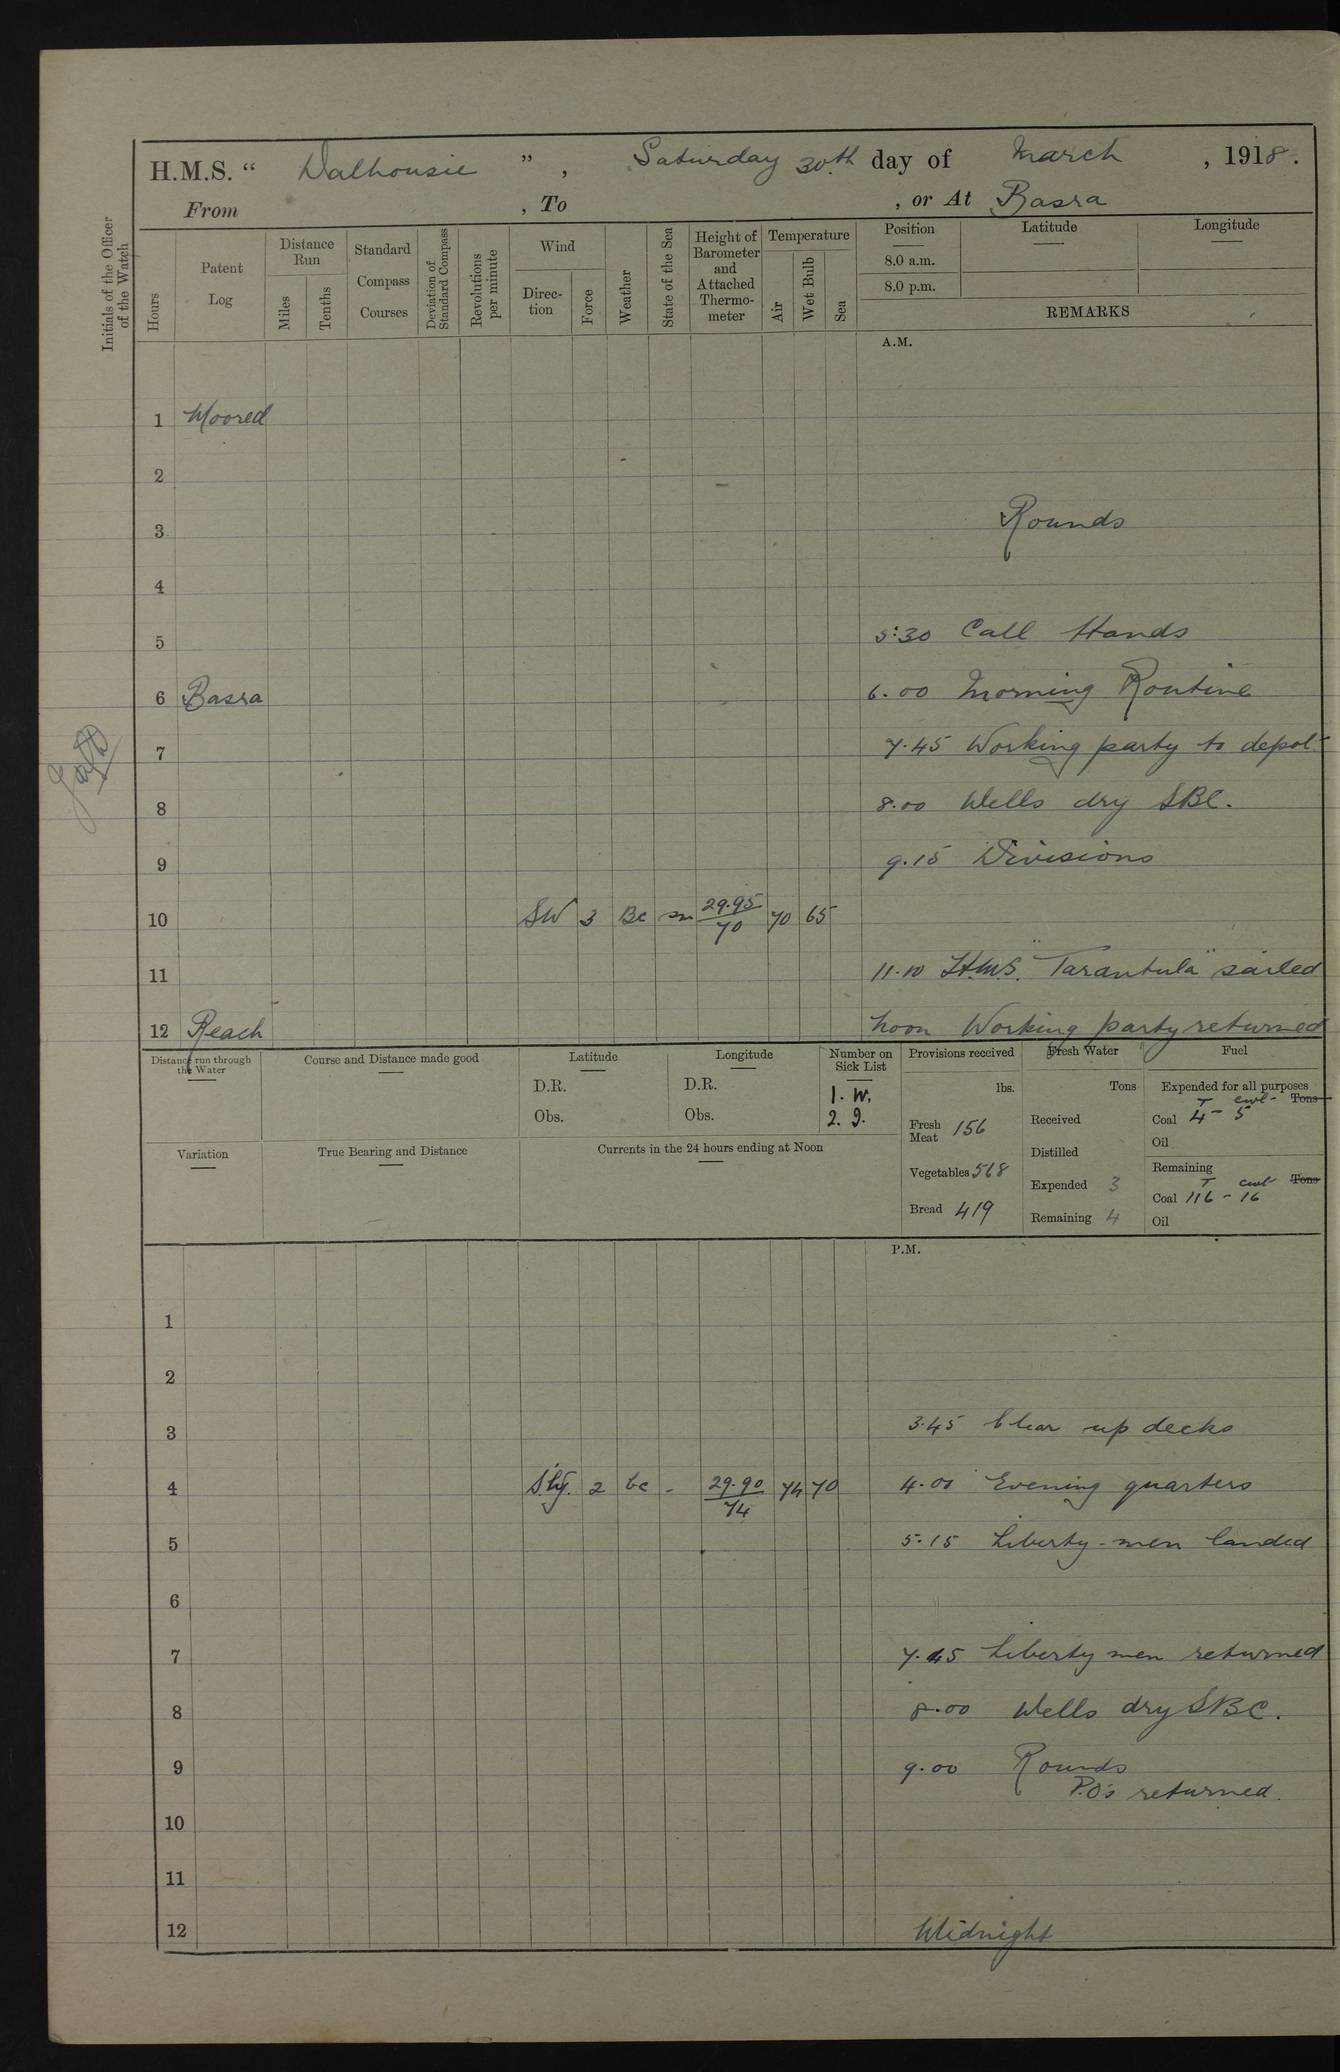 H.M.S. “ Dalhousie ”, Saturday 30th day of March, 1918.
From , To , or At Basra
Initials of the Officer of the Watch
Hours
Patent Log
Distance Run
Miles
Tenths
Standard Compass Courses
Deviation of Standard Compass
Revolutions per minute
Wind
Direction
Force
Weather
State of the Sea
Height of Barometer and Attached Thermometer
Temperature
Air
Wet Bulb
Sea
Position
8.0 a.m.
8.0 p.m.
Latitude
Longitude
REMARKS
A.M.
1 Moored
2
3 Rounds
4
5 5:30 Call Hands
6 Basra 6.00 Morning Routine
7 7.45 Working party to depot
8 8.00 Wells dry SBC.
9 9.15 Divisions
10 SW 3 Bc sm 29.95/70 70 65
11 11.10 H.M.S. "Tarantula" sailed
12 Reach Noon Working party returned
Distance run through the Water
Course and Distance made good
Latitude
D.R.
Obs.
Longitude
D.R.
Obs.
Number on Sick List
1. W.
2. I.
Variation
True Bearing and Distance
Currents in the 24 hours ending at Noon
Provisions received
lbs.
Fresh Meat 156
Vegetables 518
Bread 419
Fresh Water
Tons
Received
Distilled
Expended 3
Remaining 4
Fuel
Expended for all purposes
T cwt Tons
Coal 4 - 5
Oil
Remaining
T cwt Tons
Coal 116 - 16
Oil
P.M.
1
2
3 3.45 Clear up decks
4 S'ly. 2 bc - 29.90/74 74 70 4.00 Evening quarters
5 5.15 Liberty-men landed
6
7 7.45 Liberty men returned
8 8.00 Wells dry SBC.
9 9.00 Rounds
P.O's returned.
10
11
12 Midnight